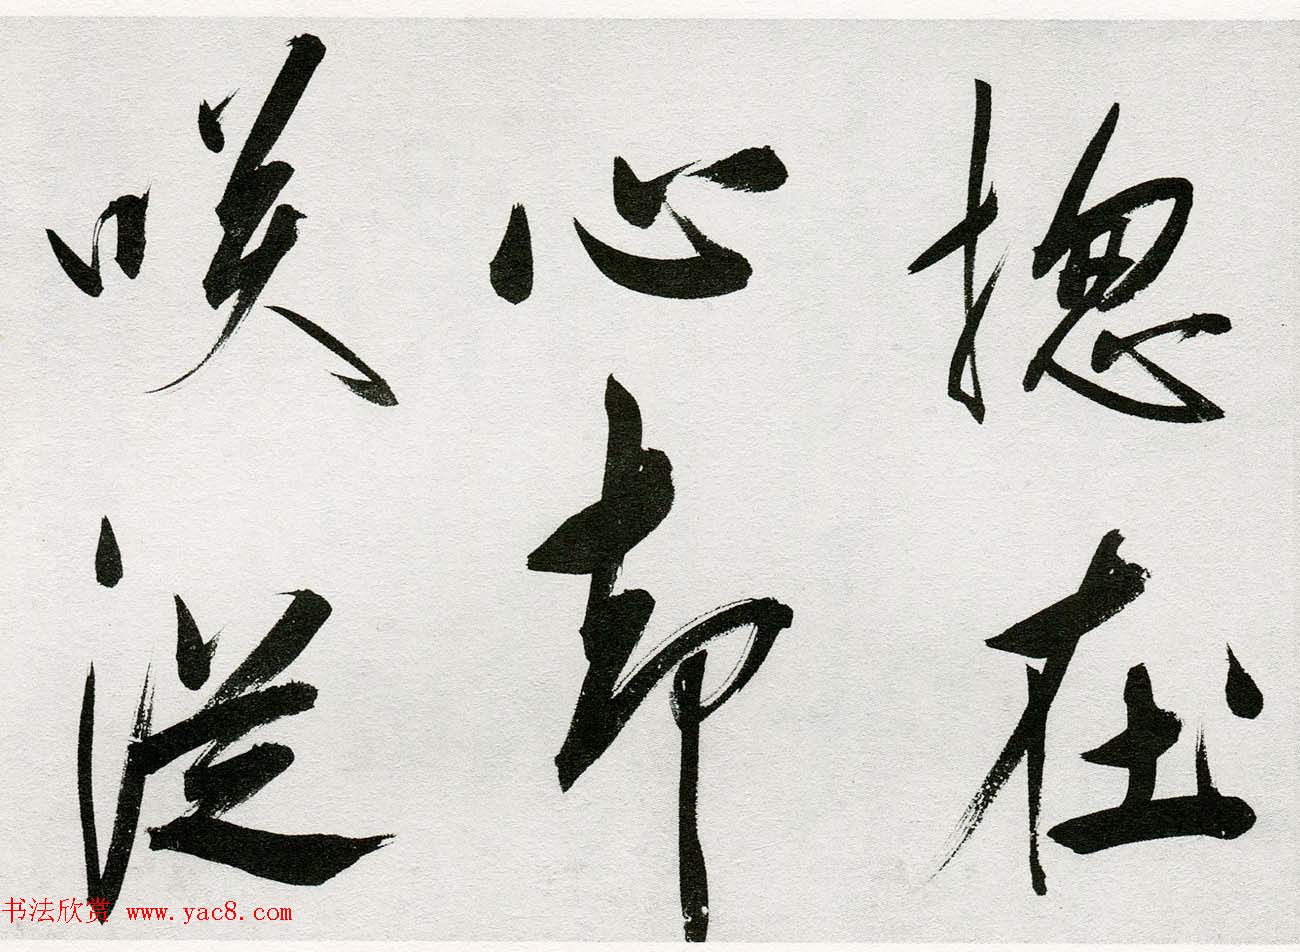 揔在
心却
咲従
书法欣赏 www.yac8.com